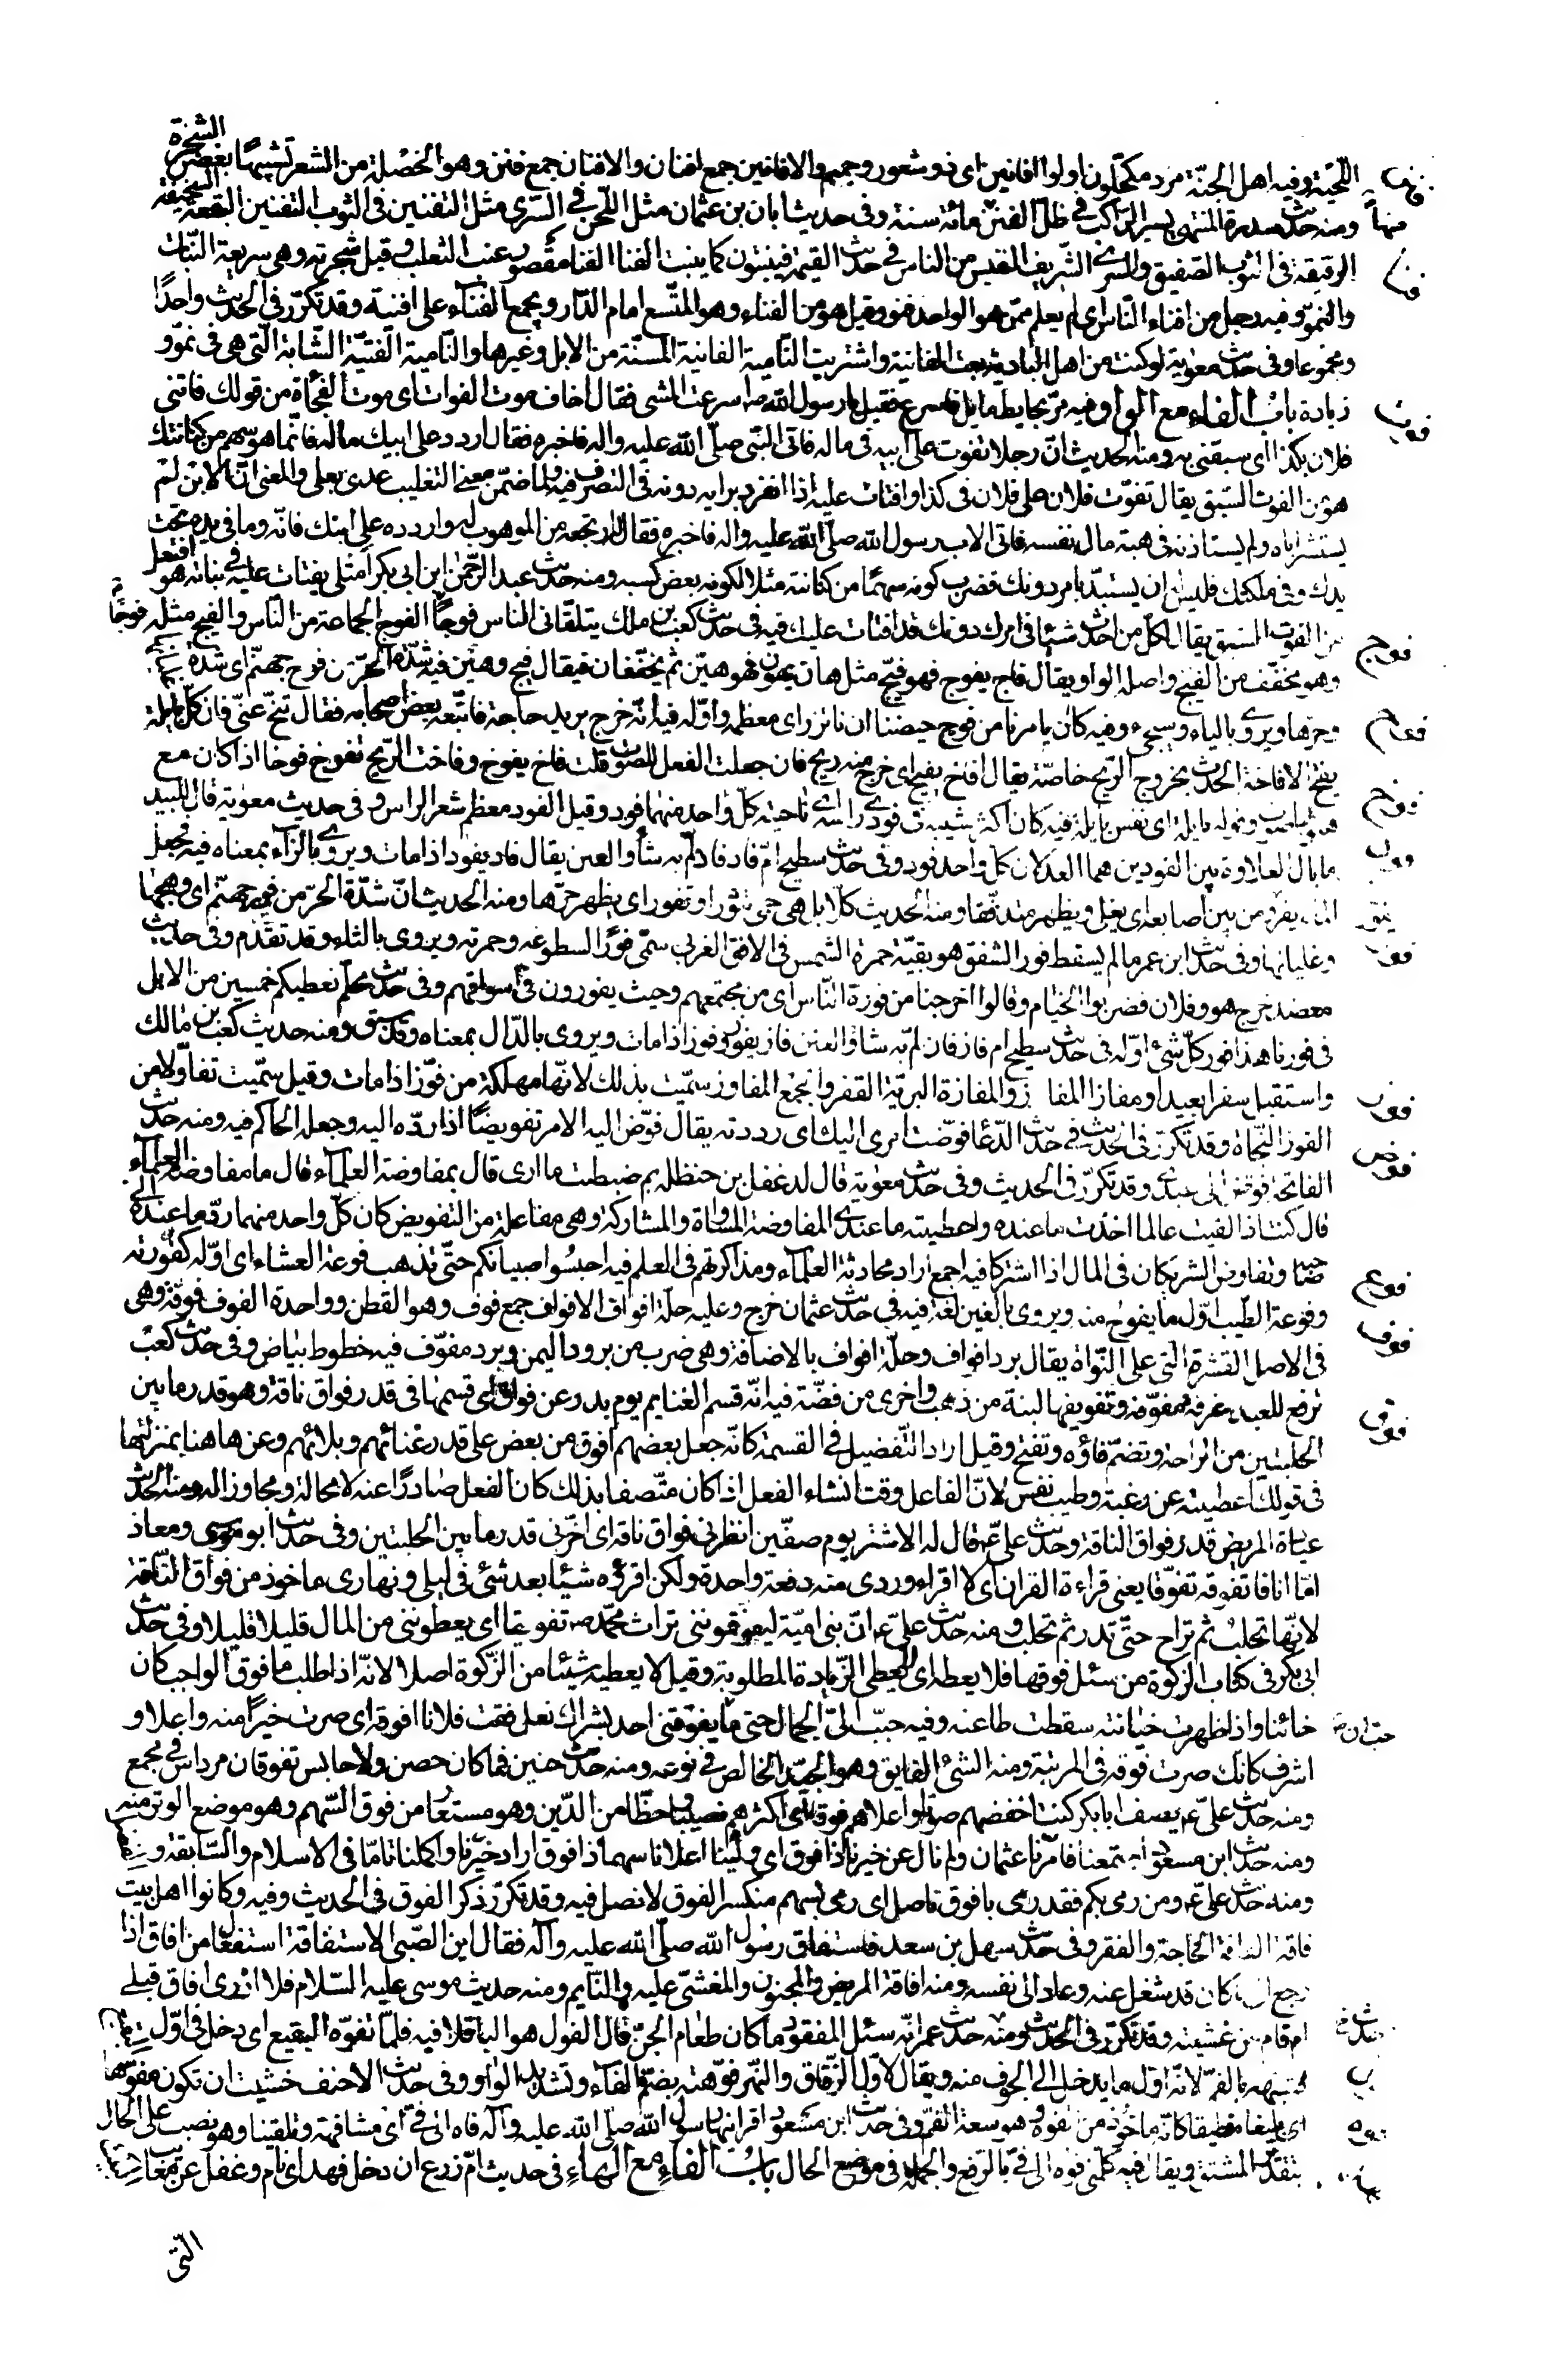 اللحية وفيه اهل الجنّة مرد مكحّلون اولوا افانين اى ذو شعور وجمم والافانين جمع افنان والافنان جمع فنن وهو الخصلة من الشعر تشبيها بغصن الشجرة
ومنه حديث سدرة المنتهى يسير الراكب فى ظلّ الفنن مائة سنة وفى حديث ابان بن عثمان مثل اللحن فى السّرى مثل التفنين فى الثوب التفنين البقعة السخيفة
الرقيقة فى الثوب الصفيق والسرى الشريف النفيس من الناس فى حديث القيمة فينبتون كما ينبت الفنا الفنا مقصور عنب الثعلب وقيل شجرته وهى سريعة النّبات
والنموّ وفيه رجل من افناء النّاس اى لم يعلم ممّن هو الواحد فنو وقيل هو من الفناء وهو المتّسع امام الدّار ويجمع الفناء على افنية وقد تكرّر فى الحديث واحدًا
ومجموعا وفى حديث معوية لو كنت من اهل البادية بعت الفانية واشتريت النّامية الفانية المسنّة من الابل وغيرها والنّامية الفتيّة الشّابة الّتى هى فى نموّ و
زيادة باب الفاء مع الواو فيه مرّ بحايط مايل فاسرع فقيل يا رسول الله ص اسرعت المشى فقال اخاف موت الفوات اى موت الفجأة من قولك فاتنى
فلان بكذا اى سبقنى به ومنه الحديث انّ رجلا تفوّت على ابيه فى ماله فاتى النبّى صلّى الله عليه واله فاخبره فقال اردد على ابيك ماله فانّما هو سهم من كنانتك
هو من الفوت السّبق يقال تفوّت فلان على فلان فى كذا وافتات عليه اذا انفرد برايه دونه فى التصرف فيه ولما ضمّن معنى التغليب عدى بعلى والمعنى انّ الابن لم
يستشر اباه ولم يستاذنه فى هبة مال نفسه فاتى الاب رسول الله صلّى الله عليه واله فاخبره فقال له ارتجعه من الموهوب له واردده على ابنك فانّه وما فى يده تحت
يدك وفى ملكتك فليس له ان يستبدّ بامر دونك فضرب كونه سهمًا من كنانته مثلا لكونه بعض كسبه ومنه حديث عبد الرّحمن ابن ابى بكر امثلى يفتات عليه فى بناته هو افتعل
من الفوت السبق يقال لكل من احدث شيئا فى امرك دونك قد افتات عليك فيه فى حديث كعب بن ملك يتلقّانى الناس فوجًا فوجًا الفوج الجماعة من النّاس والفيج مثله
وهو مخفّف من الفيّج واصله الواو يقال فاج يفوج فهو فيّج مثل هان يهون فهو هيّن ثم يخفّفان فيقال فيج وهين فيه شدّة الحرّ من فوح جهنّم اى شدّة غليانها
وحرها ويروى بالياء وسيجىء وفيه كان يامرنا من فوح حيضنا ان ناتزر اى معظمه واوّله فيه انّه خرج يريد حاجة فاتّبعه بعض اصحابه فقال تنحّ عنّى فانّ كلّ بايلة
يفيخ الافاخة الحدث بخروج الرّيح خاصّة يقال افاخ يفيخ اى خرج منه ريح فان جعلت الفعل للصوت قلت فاخ يفوخ وفاخت الرّيح تفوخ فوخا اذا كان مع
هبوبها صوت وقوله بايلة اى نفس بايلة فيه كان اكثر شيبه فى فودى راسه اى ناحيته كلّ واحد منهما فود وقيل الفود معظم شعر الراس وفى حديث معوية قال للبيد
ما بال العلاوة بين الفودين هما العدلان كلّ واحد فود وفى حديث سطيح امّ فاد فادلمّ به شأو العنن يقال فاد يفود اذا مات ويروى بالزّاء بمعناه فيه فجعل
الماء يفور من بين اصابعه اى يغلى ويظهر متدفّقا ومنه الحديث كلا بل هى حمى تثور او تفور اى يظهر حرّها ومنه الحديث انّ شدّة الحرّ من فور جهنّم اى وهجها
وغليانها وفى حديث ابن عمر ما لم يسقط فور الشفق هو بقيّة حمرة الشمس فى الافق الغربى سمّى فورًا لسطوعه وحمرته ويروى بالثاء وقد تقدّم وفى حديث
معضد خرج هو وفلان فضربوا الخيام وقالوا اخرجنا من فورة النّاس اى من مجتمعهم وحيث يفورون فى اسواقهم وفى حديث محلّم نعطيكم خمسين من الابل
فى فورنا هذا فور كلّ شئ اوّله فى حديث سطيح ام فاز فازلمّ به شاؤ العنن فاز يفوز فوزا اذا مات ويروى بالدّال بمعناه وقد سبق ومنه حديث كعب بن مالك
واستقبل سفرا بعيدا ومفازا المفاز والمفازة البريّة القفر والجمع المفاوز سمّيت بذلك لانّها مهلكة من فوّز اذا مات وقيل سمّيت تفاؤلا من
الفوز النّجاة وقد تكرّر فى الحديث فى حديث الدّعا فوّضت امرى اليك اى رددته يقال فوّض اليه الامر تفويضًا اذا ردّه اليه وجعله الحاكم فيه ومنه حديث
الفاتحة فوّض الى عبدى وقد تكرّر فى الحديث وفى حديث معوية قال لدغفل بن حنظلة بم ضبطت ما ارى قال بمفاوضة العلماء قال ما مفاوضة العلماء
قال كنت اذا لقيت عالما اخذت ما عنده واعطيته ما عندى المفاوضة المساواة والمشاركة وهى مفاعلة من التفويض كان كلّ واحد منهما ردّ ما عنده الى
صاحبه وتفاوض الشريكان فى المال اذا اشتركا فيه اجمع اراد محادثة العلماء ومذاكرتهم فى العلم فيه احبسُوا صبيانكم حتّى تذهب فوعة العشاء اى اوّله كفورته
وفوعة الطّيب اوّل ما يفوح منه ويروى بالغين لغة فيه فى حديث عثمان خرج وعليه حلّة افواف الافواف جمع فوف وهو القطن وواحدة الفوف فوفة وهى
فى الاصل القشرة التى على النّواة يقال برد افواف وحلّة افواف بالاضافة وهى ضرب من برود اليمن وبرد مفوّف فيه خطوط بياض وفى حديث كعب
ترفع للعبد غرفة مفوّفة وتفويفها لبنة من ذهب واخرى من فضّة فيه انّه قسم الغنايم يوم بدر عن فواق اى قسمها فى قدر فواق ناقة وهو قدر ما بين
الحلبتين من الراحة وتضمّ فاؤه وتفتح وقيل اراد التّفضيل فى القسمة كانّه جعل بعضهم افوق من بعض على قدر غنائهم وبلائهم وعن هاهنا بمنزلتها
فى قولك اعطيته عن رغبة وطيب نفس لانّ الفاعل وقت انشاء الفعل اذا كان متّصفا بذلك كان الفعل صادرًا عنه لا محالة ومجاوزا له ومنه الحديث
عيادة المريض قدر فواق الناقة وحديث علىّ ع قال له الاشتر يوم صفّين انظرنى فواق ناقة اى اخّرنى قدر ما بين الحلبتين وفى حديث ابو موسى ومعاذ
امّا انا فاتفوقه تفوّقا يعنى قراءة القران اى لا اقراء وردى منه دفعة واحدة ولكن اقرؤه شيئا بعد شئ فى ليلى ونهارى ماخوذ من فواق النّاقة
لانّها تحلب ثم تراح حتّى تدر ثم تحلب ومنه حديث علىّ ع انّ بنى اميّة ليفوّقوننى تراث محمّد ص تفويقا اى يعطوننى من المال قليلا قليلا وفى حديث
ابى بكر فى كتاب الزكوة من سئل فوقها فلا يعطه اى لا يعطى الزّيادة المطلوبة وقيل لا يعطيه شيئا من الزّكوة اصلا لانّه اذا طلب ما فوق الواجب كان
خائنا واذا ظهرت خيانته سقطت طاعته وفيه حبّب الىّ الجمال حتى ما يفوقنى احد بشراك نعل فقت فلانا افوقه اى صرت خيرًا منه واعلا و
اشرف كانّك صرت فوقه فى المرتبة ومنه الشئ الفايق وهو الجيّد الخالص فى نوعه ومنه حديث حنين فما كان حصن ولا حابس تفوقان مرداس فى مجمع
ومنه حديث علىّ ع يصف ابا بكر كنت اخفضهم صوتا واعلاهم فوقا اى اكثرهم نصيبا وحظّا من الدّين وهو مستعار من فوق السّهم وهو موضع الوتر منه
ومنه حديث ابن مسعود اجتمعنا فامّرنا عثمان ولم نال عن خيرنا ذا فوق اى ولّينا اعلانا سهما ذا فوق اراد خيرنا واكملنا تامّا فى الاسلام والسّابقة و
ومنه حديث علىّ ع ومن رمى بكم فقد رمى بافوق ناصل اى رمى بسهم منكسر الفوق لا نصل فيه وقد تكرّر ذكر الفوق فى الحديث وفيه وكانوا اهل بيت
فاقة الفاقة الحاجة والفقر وفى حديث سهل بن سعد فاستفاق رسول الله صلّى الله عليه وآله فقال اين الصّبى الاستفاقة استفعال من افاق اذا
رجع الى ما كان قد شغل عنه وعاد الى نفسه ومنه افاقة المريض والمجنون والمغشىّ عليه والنّايم ومنه حديث موسى عليه السّلام فلا ادرى افاق قبلى
ام قام من غشيته وقد تكرّر فى الحديث ومنه حديث عمر انّه سئل المفقود ما كان طعام الجنّ قال الفول هو الباقلا فيه فلمّا تفوّه البقيع اى دخل فى اوّل
فشبهه بالفمّ لانّه اوّل ما يدخل الى الجوف منه ويقال لاوّل الزّقاق والنّهر فوّهته بضمّ الفاء وتشديد الواو وفى حديث الاحنف خشيت ان تكون مفوّها
اى بليغا منطيقا كانّه ماخوذ من الفوه وهو سعة الفم وفى حديث ابن مسعود اقرانيها رسول الله صلّى الله عليه وآله فاه الى فىّ اى مشافهة وتلقينا وهو نصب على الحال
بتقدير المشتق ويقال فيه كلّمنى فوه الى فىّ بالرّفع والجملة فى موضع الحال باب الفاء مع الهاء فى حديث امّ زرع ان دخل فهد اى نام وغفل عن معايب
التى